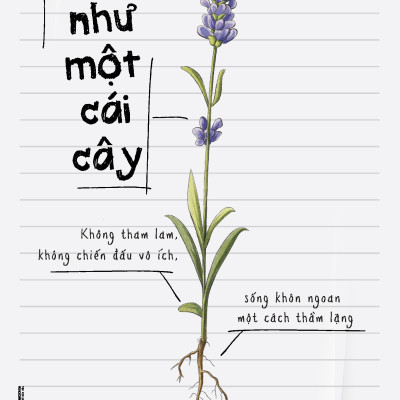 như
một
cái
cây
Không tham lam,
không chiến đấu vô ích,
sống khôn ngoan
một cách thầm lặng